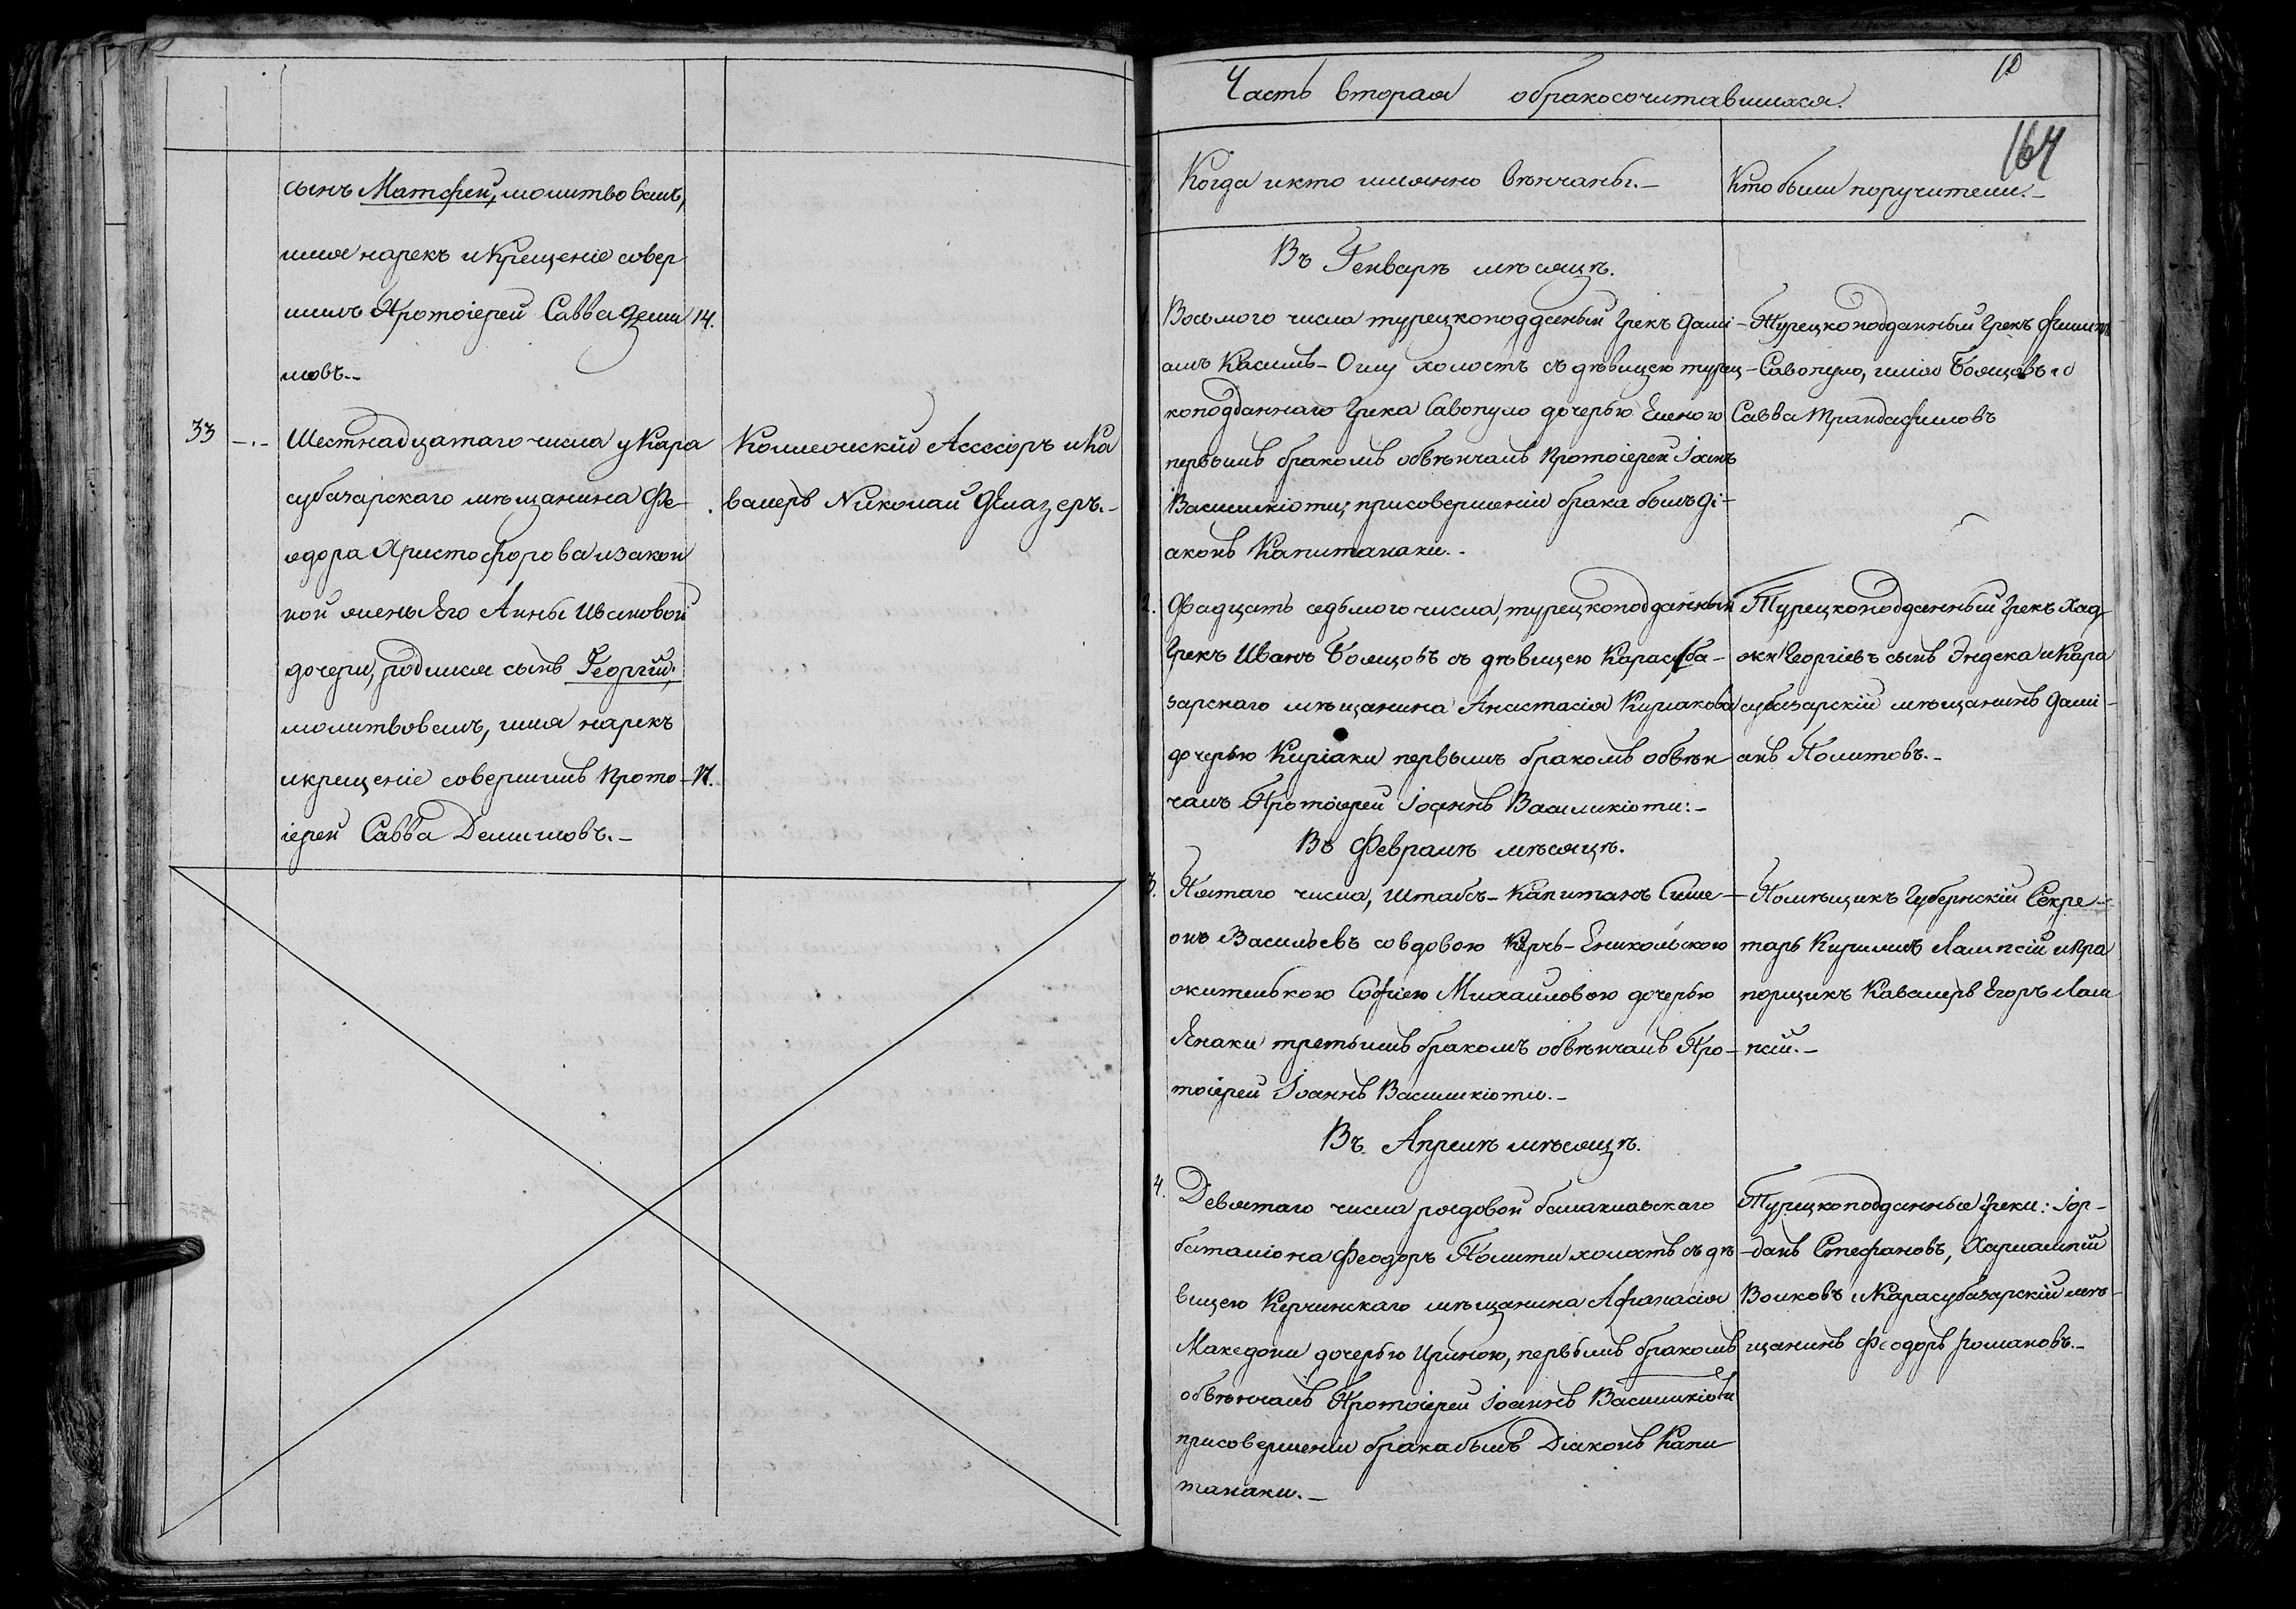 сынъ Матфей, молитвовалъ,
имя нарекъ и крещеніе совер
шилъ Протоіерей Савва Деми 14.
мовъ.-
33 -.- Шестнадцатаго числа у Кара
субазарскаго мѣщанина Фе-
одора Христофорова и закон
ной жены Его Анны Ивановой
дочери, родился сынъ Георгій;
молитвовалъ, имя нарекъ
и крещеніе совершилъ Прото- 17.
іерей Савва Демимовъ.-
Коллежскій Ассесоръ и Ка
валеръ Николай
10
Часть вторая о бракосочитавшихся.
164
Когда и кто имянно вѣнчаны.-
Кто были поручители.-
Въ Генварѣ мѣсяцѣ.
Восьмого числа турецкоподданый Грекъ Дамі-
анъ Касимъ-Оглу холостъ съ дѣвицею турец-
коподданнаго Грека Савопуло дочерью Еленою
первымъ бракомъ обвѣнчалъ Протоіерей Іоанъ
Василикіоти; присовершеніи брака былъ Ді-
аконъ Капитанаки.-
Турецкоподданный Грекъ Филипъ
Савопуло, Боящовъ и
Савва Трандафиловъ
2. Двадцать седьмого числа, турецкоподданный
Грекъ Иванъ Боящовъ съ дѣвицею Карасуба-
зарскаго мѣщанина Анастасія Киріакова
дочерью Киріаки первымъ бракомъ обвѣн
чалъ Протоіерей Іоаннъ Василикіоти:-
Турецкоподданный Грекъ Хад
жи Георгіевъ сынъ Эндека и Кара
субазарскій мѣщанинъ Дамі-
анъ Политовъ.-
Въ Февралѣ мѣсяцѣ.
3. Пятаго числа, Штабсъ-Капитанъ Симе-
онъ Васильевъ со вдовою Керчь-Еникольскою
жителькою Софіею Михаиловою дочерью
Янаки третьимъ бракомъ обвѣнчалъ Про-
тоіерей Іоаннъ Василикіоти.-
Помѣщикъ Губернскій Секре-
тарь Кирилъ Лампсій и Пра
порщикъ Кавалеръ Егоръ Лам
псій.-
Въ Апрелѣ мѣсяцѣ.
4. Девятаго числа рядовой балаклавскаго
баталіона Феодоръ Политы холостъ съ дѣ
вицею Керчинскаго мѣщанина Афанасія
Македони дочерью Ириною, первымъ бракомъ
обвѣнчалъ Протоіерей Іоаннъ Василикіоти
присовершеніи брака былъ Діаконъ Капи
танаки.-
Турецкоподданные Греки: Іор-
-данъ Стефановъ, Харлампій
Волковъ и Карасубазарскій мѣ-
щанинъ Феодоръ Романовъ.-